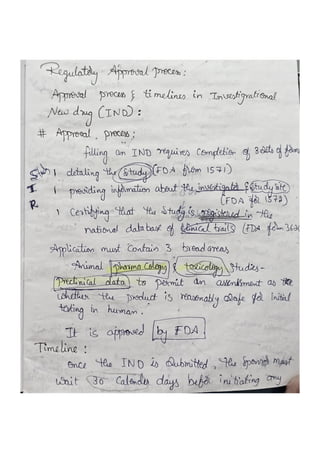 Regulatory Approval process:
Approval process & timelines in Investigational
New drug (IND):
# Approval process:
filling an IND requires Completion of 3 sets of form
1 detailing the study (FDA form 1571)
1 providing information about the investigator & study site
(FDA for 1572)
1 Certifying that the study is registered in the
national database of clinical trails (FDA form 36
Application must Contain 3 broad areas
Animal pharmacology & toxicology studies-
Preclinical data to permit an assessment as to
whether the product is reasonably safe for initial
testing in human.
It is approved by FDA
Timeline:
once the IND is submitted, the sponsor must
wait 30 Calender days before initiating any
S
I
R